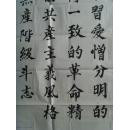 習愛憎分明的
一致的革命精
共產主義風格
產階級斗志